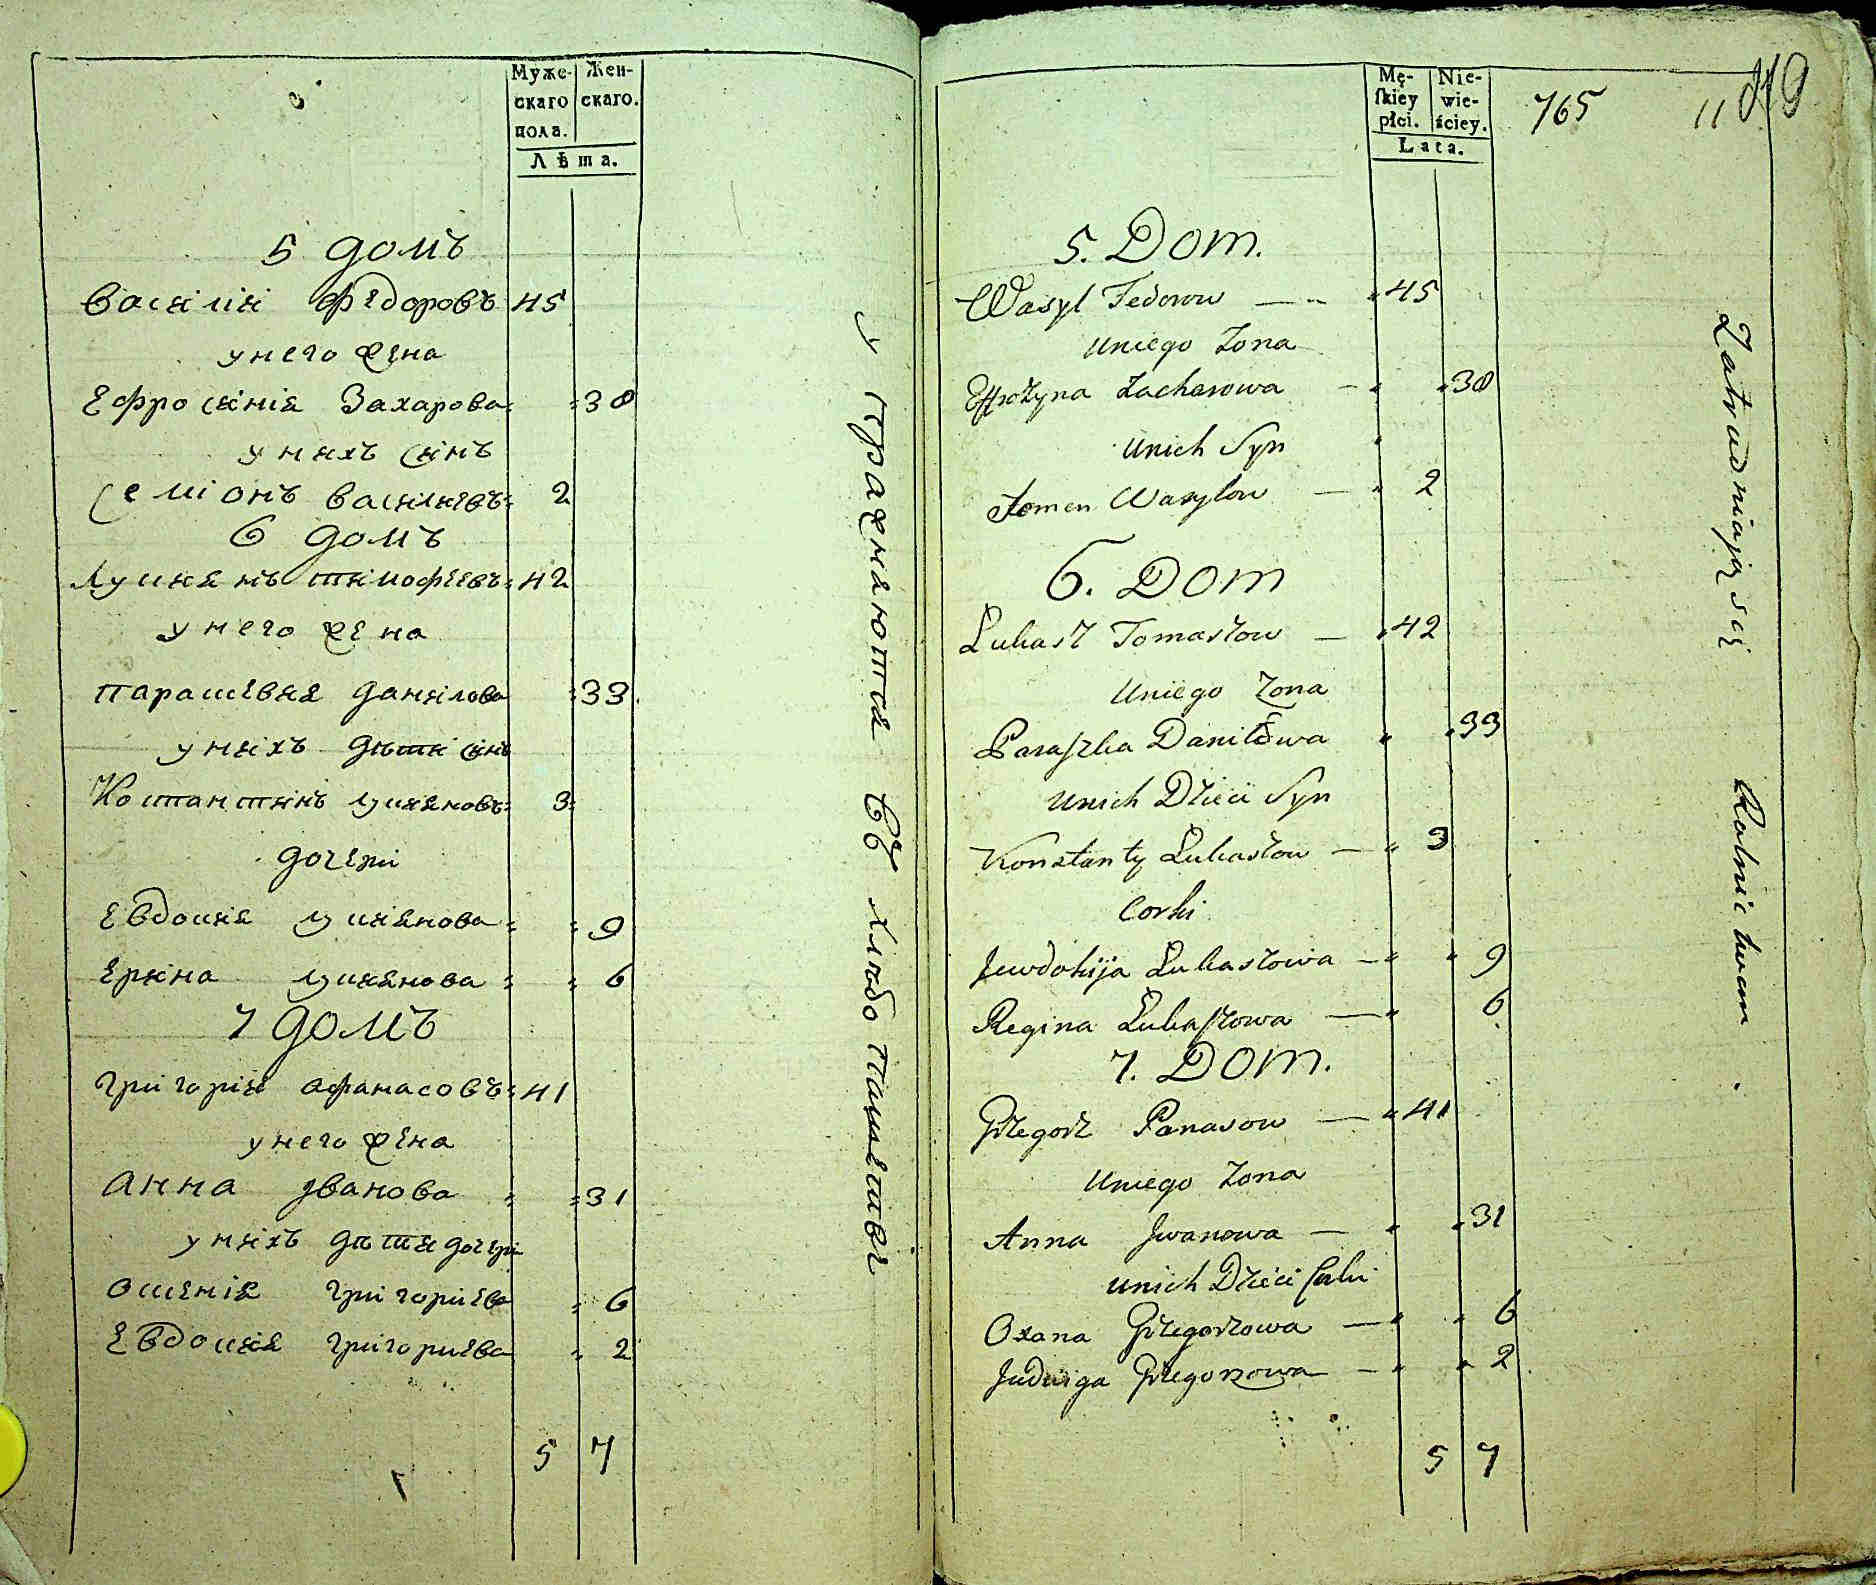 Муже- Жен-
скаго скаго.
пола.
Лѣта.
5 домъ
Василій Федоровъ 45
у него жена
Ефросинія Захарова 38
у нихъ синъ
Семіонъ Василиевъ 2
6 домъ
Лукиянъ Тимофеевъ 42
у него жена
Парасковия Данилова 33
у нихъ дѣти синъ
Костантинъ Лукияновъ 3
дочери
Евдокия Лукиянова 9
Ерина Лукиянова 6
7 домъ
Григорій Афанасовъ 41
у него жена
Анна Иванова 31
у нихъ дѣти дочери
Оксения Григориева 6
Евдокия Григориева 2
5 7
Упражняются въ хлѣбопашествѣ
Mę- Nie-
ſkiey wie-
płci. ściey.
Lata.
765 11
5. Dom.
Wasyl Fedorow — 45
Uniego Zona
Effrozyna Zacharowa — 38
Unich Syn
Semen Wasylow — 2
6. Dom
Łukasz Tomaszow — 42
Uniego Zona
Paraszka Daniłowa 33
Unich Dzieci Syn
Konstanty Łukaszow — 3
Corki
Jewdokija Łukaszowa — 9
Regina Łukaszowa — 6
7. Dom.
Grzegorz Panasow — 41
Uniego Zona
Anna Jwanowa — 31
Unich Dzieci Corki
Oxana Grzegorzowa — 6
Judwiga Grzegorzowa — 2
5 7
Zatrudniaią się Rolnictwem.